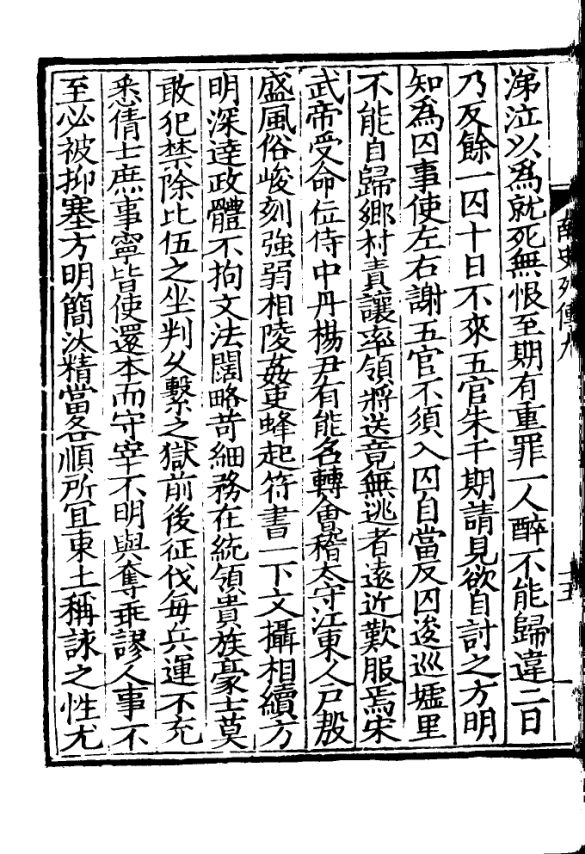 涕泣以為就死無恨至期有重罪一人醉不能歸違二日
乃反餘一囚十日不來五官朱千期請見欲自討之方明
知為囚事使左右謝五官不須入囚自當反囚逡巡墟里
不能自歸鄉村責讓率領將送竟無逃者遠近歎服焉宋
武帝受命位侍中丹楊尹有能名轉會稽太守江東人戶殷
盛風俗峻刻強弱相陵姦吏蜂起符書一下文攝相續方
明深達政體不拘文法闊略苛細務在統領貴族豪士莫
敢犯禁除比伍之坐判久繫之獄前後征伐每兵運不充
悉倩士庶事寧皆使還本而守宰不明與奪乖謬人事不
至必被抑塞方明簡汰精當各順所宜東土稱詠之性尤